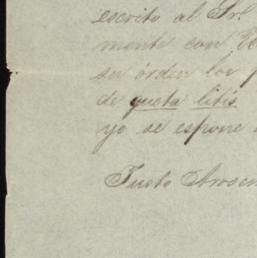 escrito al Sr.
mente con
su órden los
de questa litis.
yo se espone
Justo Arosem